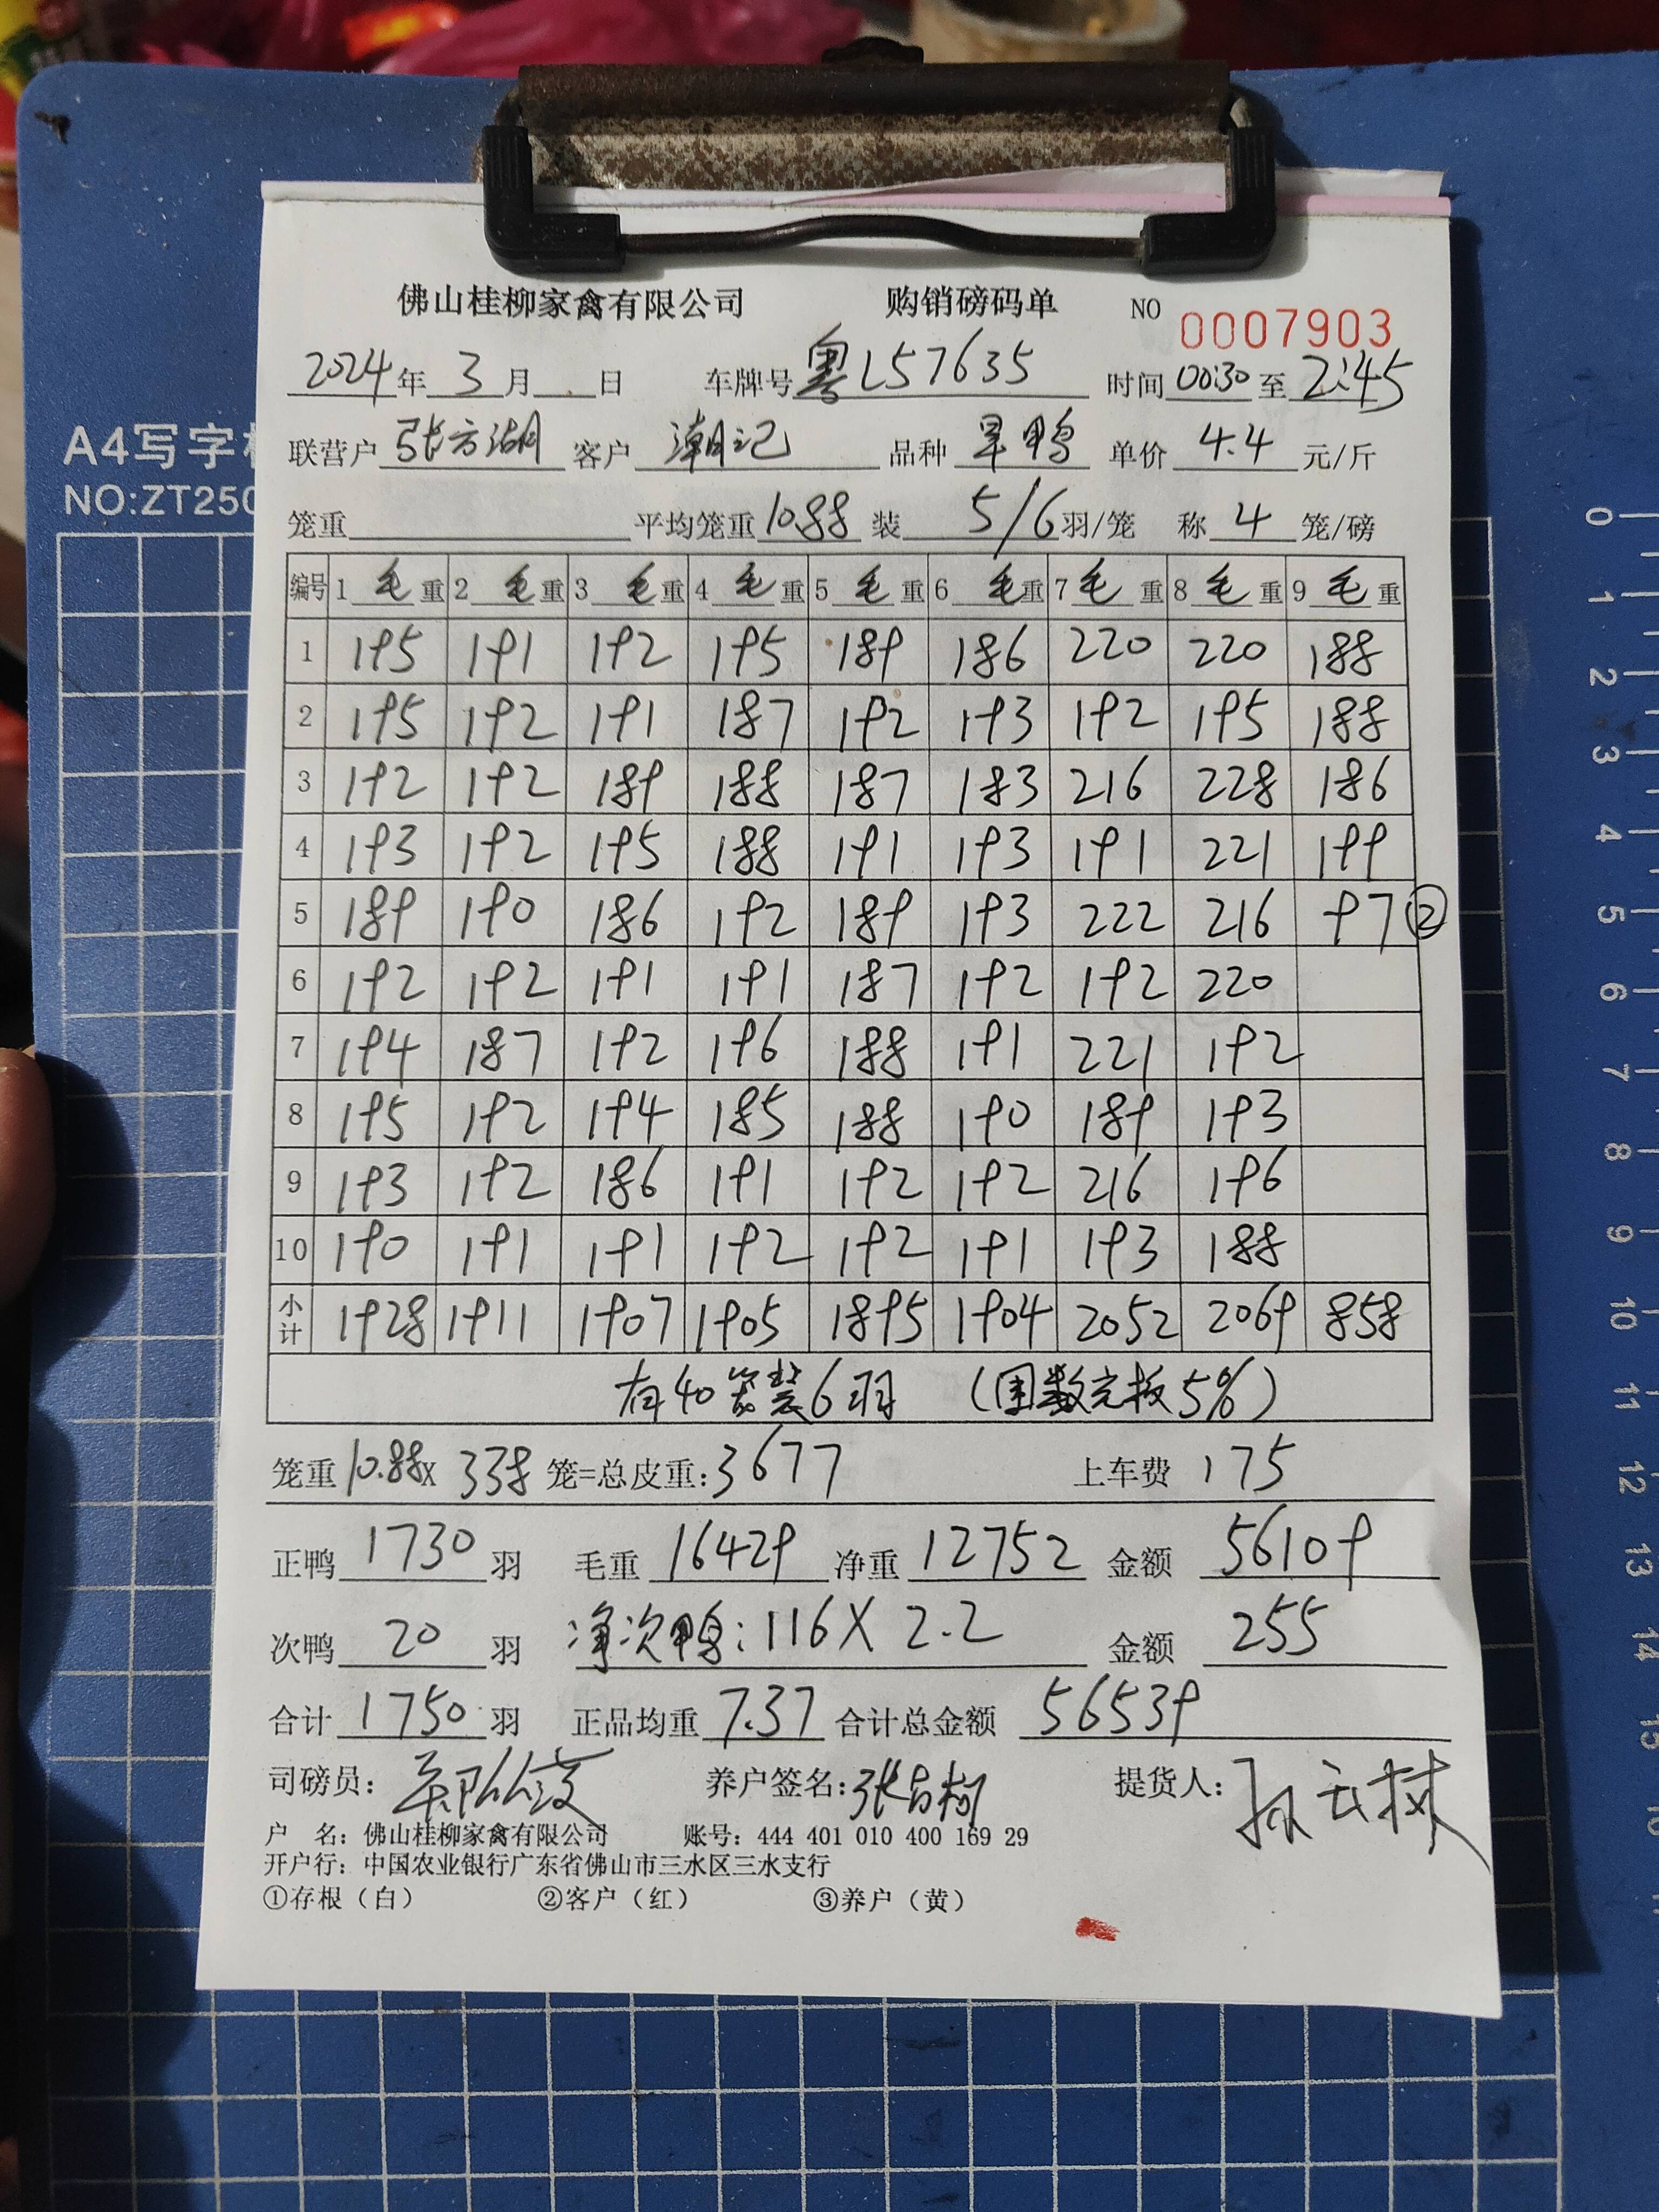 佛山桂柳家禽有限公司 购销磅码单 NO 0007903
2024年 3月 日 车牌号 粤L57635 时间 00:30 至 2:45
A4写字
联营户 张方湖 客户 潮记 品种 旱鸭 单价 4.4 元/斤
NO:ZT250
笼重 平均笼重 10.88 装 5/6 羽/笼 称 4 笼/磅
编号 1 毛重 2 毛重 3 毛重 4 毛重 5 毛重 6 毛重 7 毛重 8 毛重 9 毛重
1 195 191 192 195 189 186 220 220 188
2 195 192 191 187 192 193 192 195 188
3 192 192 189 188 187 183 216 228 186
4 193 192 195 188 191 193 191 221 199
5 189 190 186 192 189 193 222 216 97 ②
6 192 192 191 191 187 192 192 220
7 194 187 192 196 188 191 221 192
8 195 192 194 185 188 190 189 193
9 193 192 186 191 192 192 216 196
10 190 191 191 192 192 191 193 188
小计 1928 1911 1907 1905 1895 1904 2052 2069 858
有40笼装6羽 5%
笼重 10.88 x 338 笼=总皮重: 3677 上车费 175
正鸭 1730 羽 毛重 16429 净重 12752 金额 56109
次鸭 20 羽 净次鸭: 116 X 2.2 金额 255
合计 1750 羽 正品均重 7.37 合计总金额 56539
司磅员: 养户签名: 提货人:
户 名: 佛山桂柳家禽有限公司 账号: 444 401 010 400 169 29
开户行: 中国农业银行广东省佛山市三水区三水支行
①存根（白） ②客户（红） ③养户（黄）
0
1
2
3
4
5
6
7
8
9
10
11
12
13
14
15